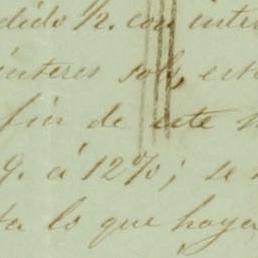 dido p. con inter
interes sob, est
fin de este
9. á 12%; se
ta lo que haya